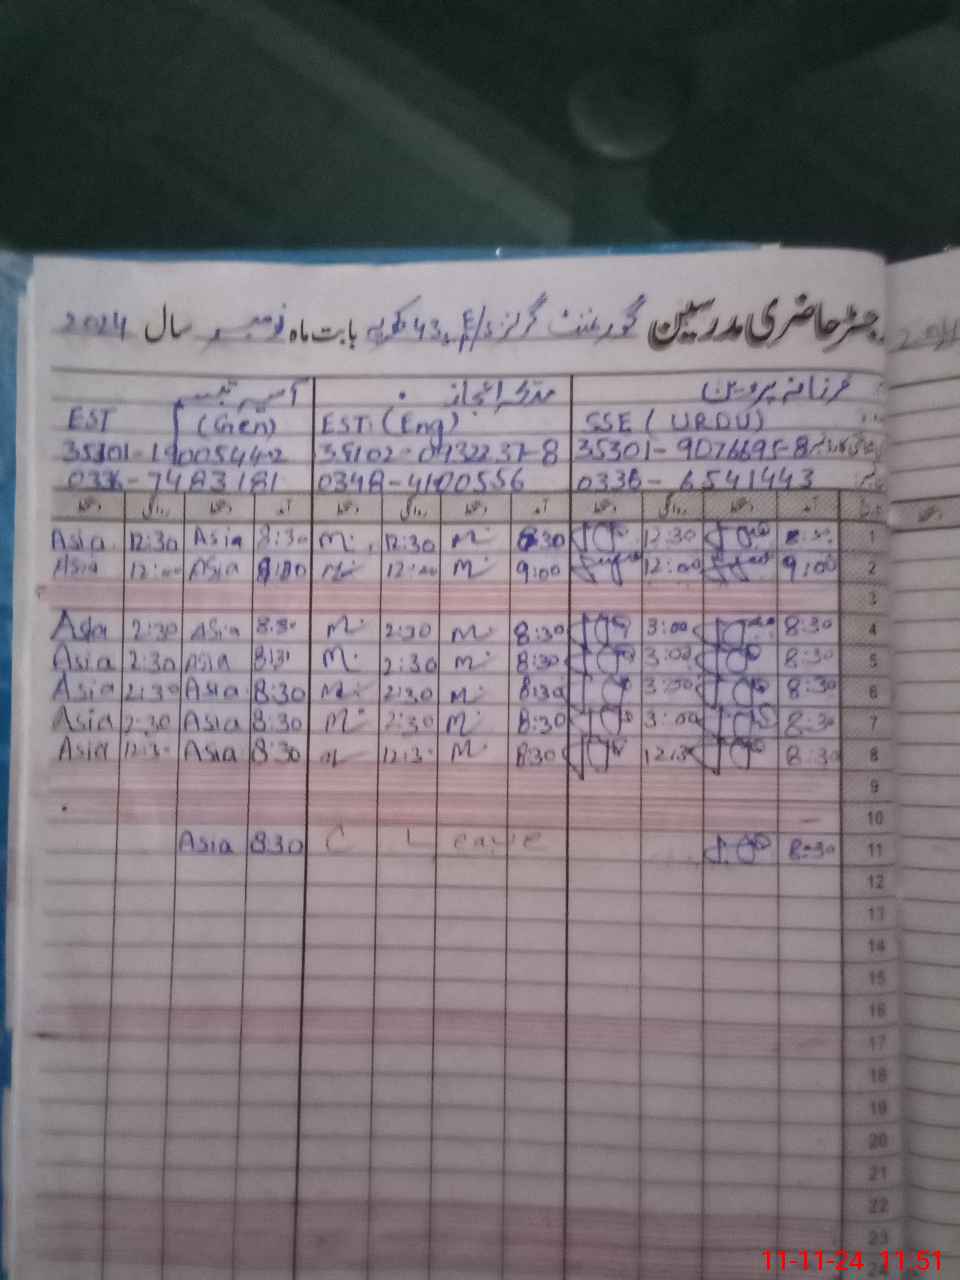 رجسٹر حاضری مدرسین گورنمنٹ گرلز بابت ماہ نومبر سال 2024
فرزانہ پروین آسیہ
SSE (URDU) EST (Eng) EST (Gen)
35301-9076695-8 35102-0932237-8 35301-1900544-2
0336-6541443 0348-4100556 0336-7483181
آمد دستخط روانگی دستخط آمد دستخط روانگی دستخط آمد دستخط روانگی دستخط
Asia 12:30 Asia 8:30 M 12:30 M 8:30 12:30 1
Asia 12:00 Asia M 12:00 M 9:00 12:00 9:00 2
3
Asia 2:30 Asia 8:30 M 2:30 M 8:30 3:00 8:30 4
Asia 2:30 Asia 8:31 M 2:30 M 8:30 3:00 8:30 5
Asia 2:30 Asia 8:30 M 2:30 M 8:30 3:00 8:30 6
Asia 2:30 Asia 8:30 M 2:30 M 8:30 3:00 8:30 7
Asia 12:3 Asia 8:30 M 12:3 M 830 12:3 8:30 8
9
10
Asia 830 C Leave 8:30 11
12
13
14
15
16
17
18
19
20
21
22
23
24
11-11-24 11:51